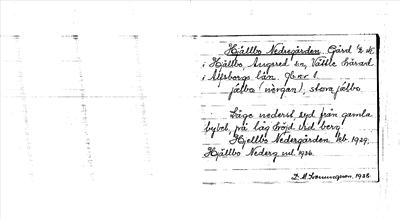 Hjällbo Nedergården. Gård ½ mt.
i Hjällbo, Angered sn, Vättle härad
i Älvsborgs län. Gb nr 1.
jälbo (nérgan), stora jälbo.
Läge nederst syd från gamla
bybet, på låg höjd vid berg.
Hjellbo Nedergården kb. 1929,
Hjällbo Nederg. ml. 1936.
1938